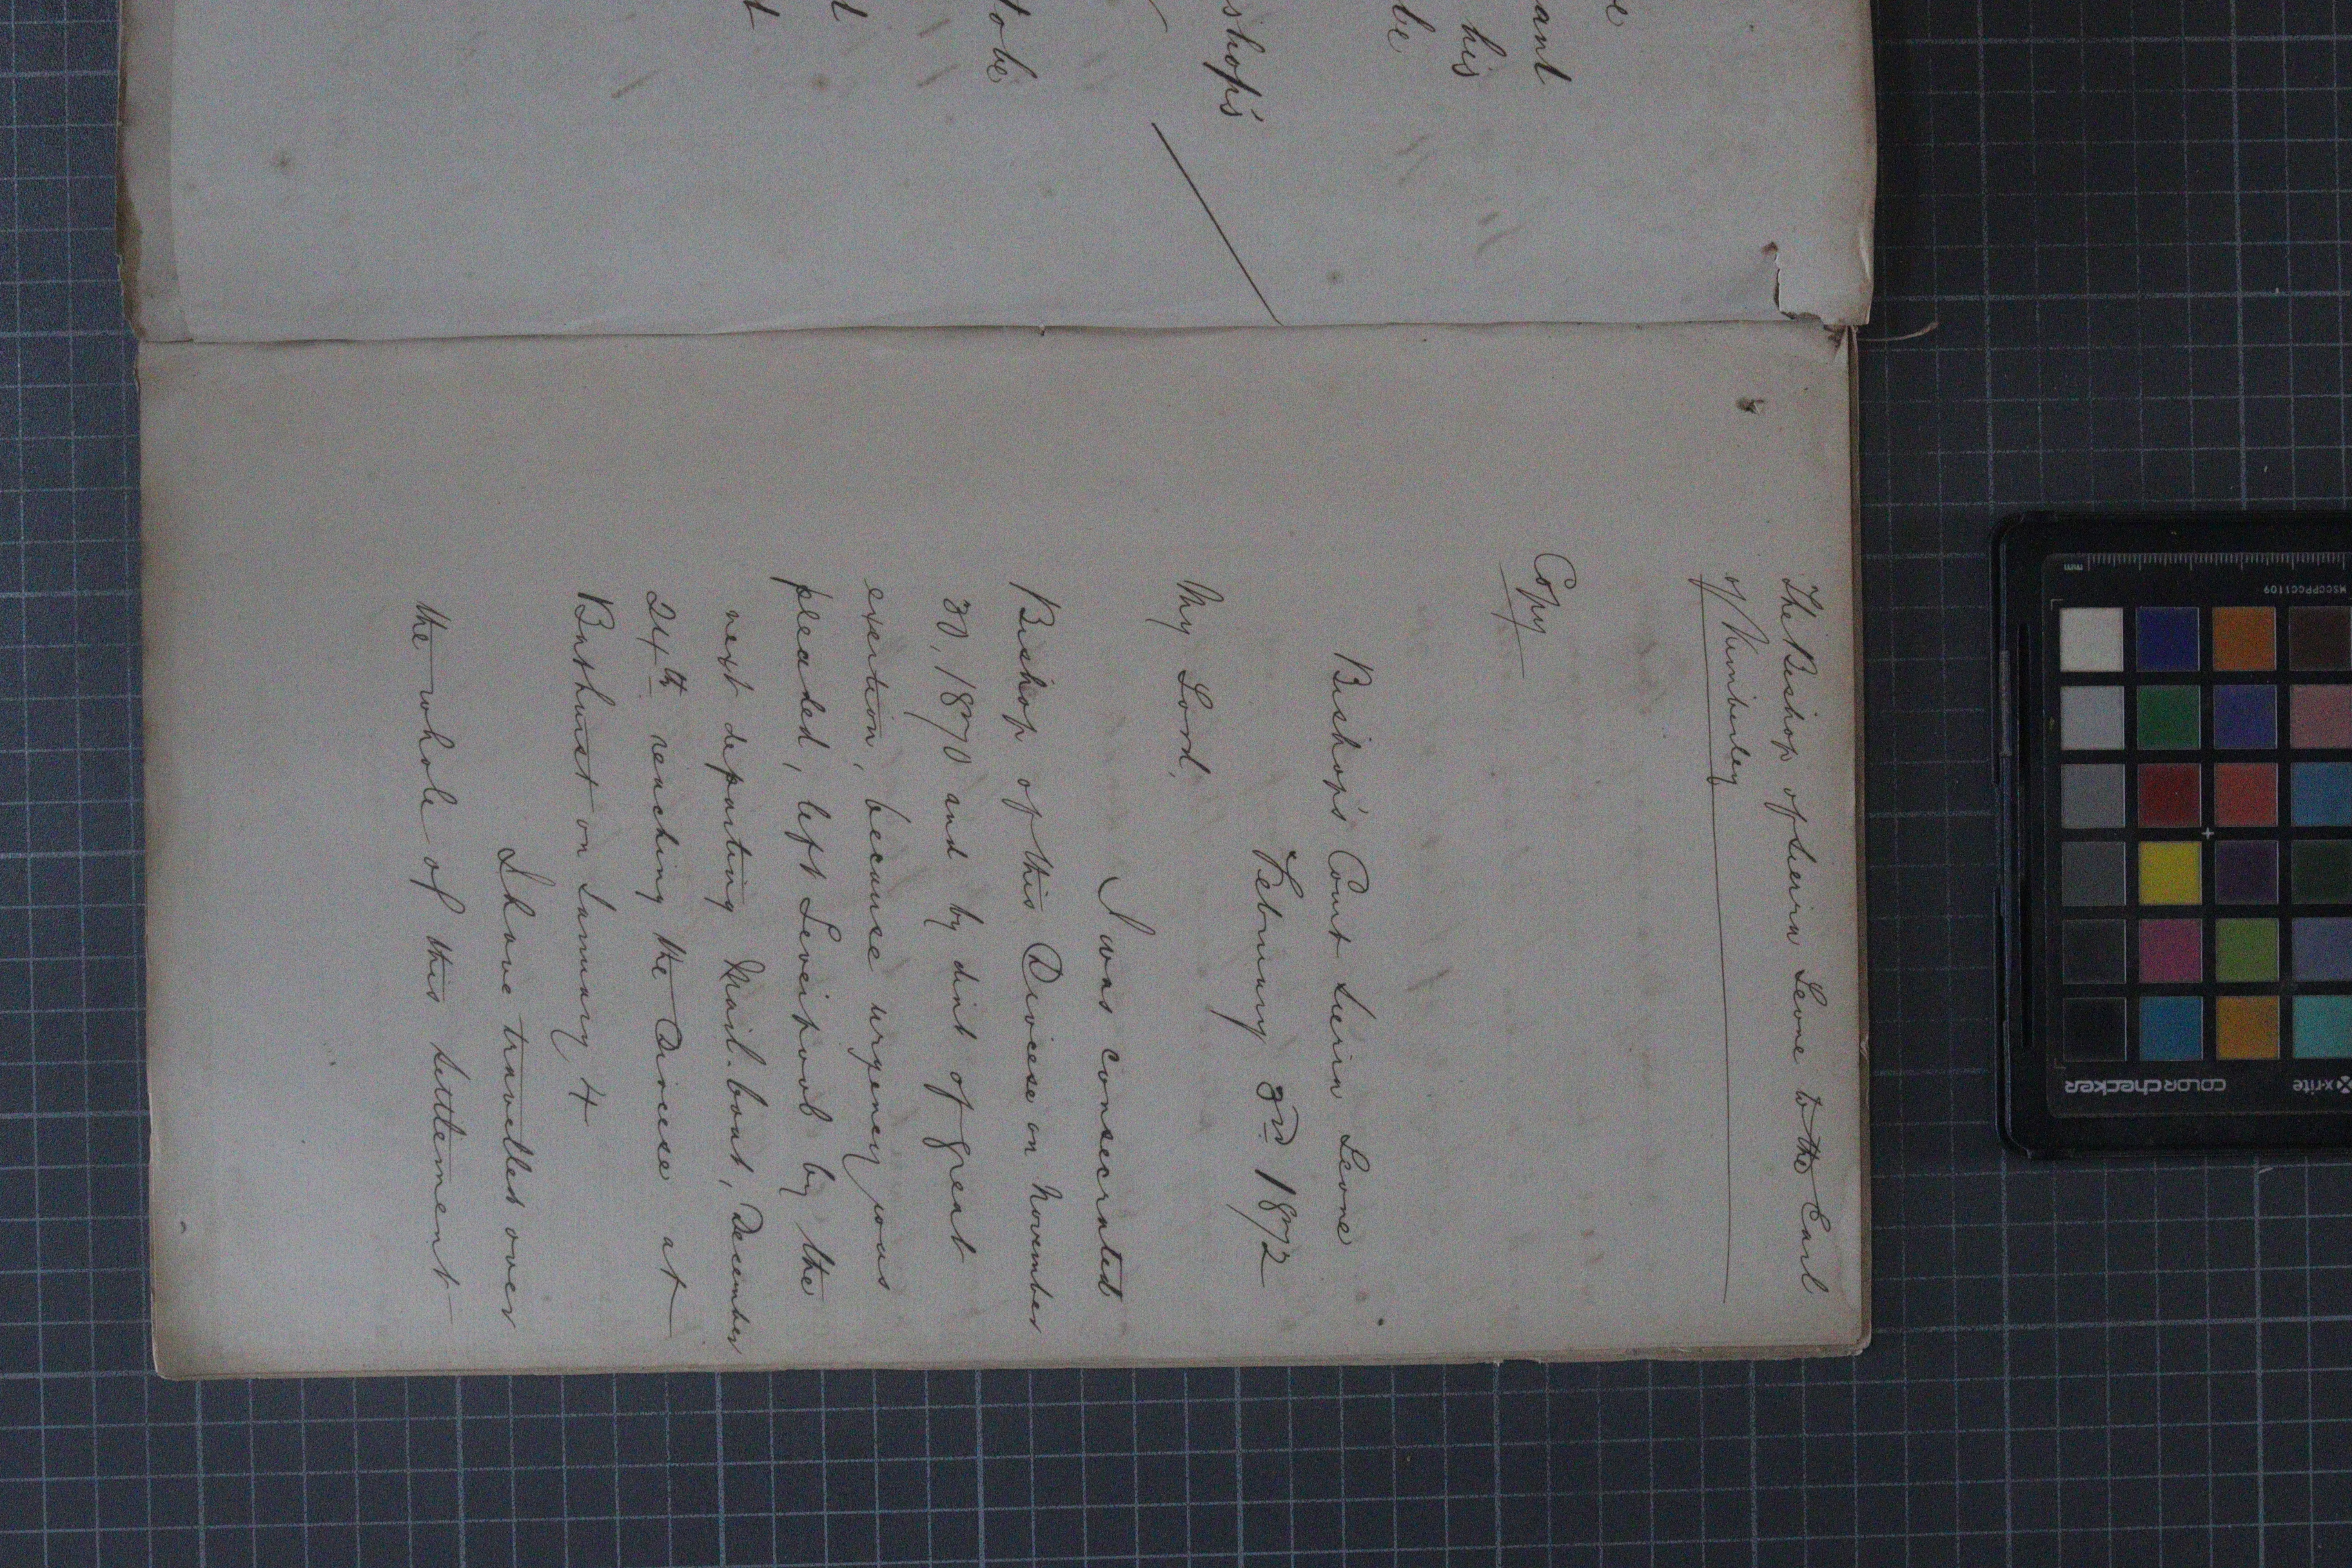 e
ant
his
be
shop's
to be
t
t
The Bishop of Sierra Leone to the Earl
of Kimberley
Copy
Bishop's Court Sierra Leone
February 3rd 1872
My Lord,
I was consecrated
Bishop of this Diocese on November
30, 1870 and by dint of great
exertion, because urgency was
pleaded, left Liverpool by the
next departing Mail-boat, December
24th reaching the Diocese at
Bathurst on January 4
I have travelled over
the whole of this settlement
mm
MSCCPPCC1109
colorchecker
x-rite